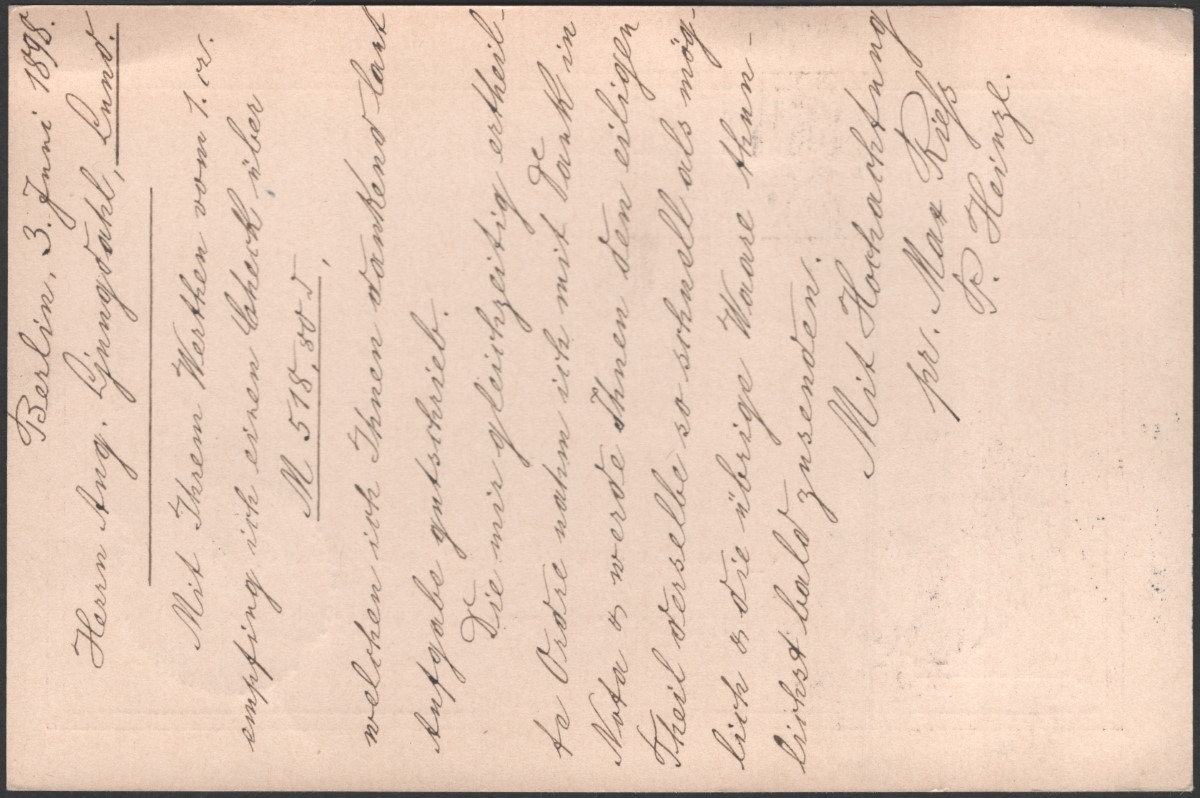 Berlin, 3. Juni 1898.
Herrn Aug. Ljungdahl, Lund.
Mit Ihrem Werthen vom 1. cr.
empfing ich einen Check über
M 518.80 d,
welchen ich Ihnen dankend laut
Aufgabe gutschrieb.
Die mir gleichzeitig ertheil-
te Ordre nahm ich mit Dank in
Nota & werde Ihnen den eiligen
Theil derselbe so schnell als mög-
lich & die übrige Waare thun-
lichst bald zusenden.
Mit Hochachtung
pr. Max Rieß
P. Heinze.